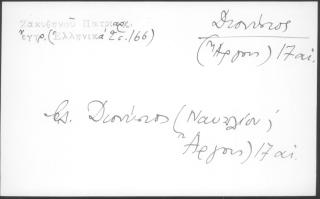 Ζακυθηνοῦ Πατριαρχ.
ἔγγρ. (Ἑλληνικά 2 σ. 166)
Διονύσιος
(Ἄργους) 17 αἰ.
βλ. Διονύσιος (Ναυπλίου,
Ἄργους) 17 αἰ.